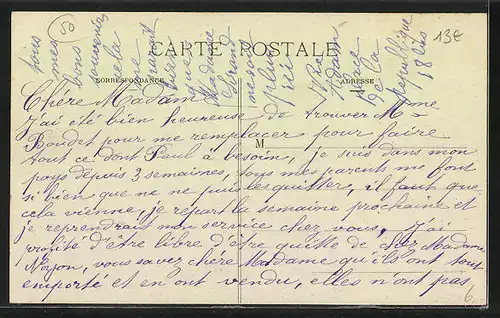 50
13€
CARTE POSTALE
CORRESPONDANCE
ADRESSE
M
Chére Madame
J'ai été bien heureuse de trouver Mme
Boudet pour me remplacer pour faire
tout ce dont Paul à besoin, je suis dans mon
pays depuis 3 semaines, tous mes parents me font
si bien que ne ne puis les quitter, il faut que
cela vienne, je repart la semaine prochaine et
je reprendrait mon service chez vous, J'ai
profité d'être libre d'être quitte de chez Madame
Noyon, vous savez chére Madame qu'ils ont tout
emporté et en ont vendu, elles n'ont pas
tous
mes
bons
cela
que
Madame
plus
rue
de la
République
18 bis